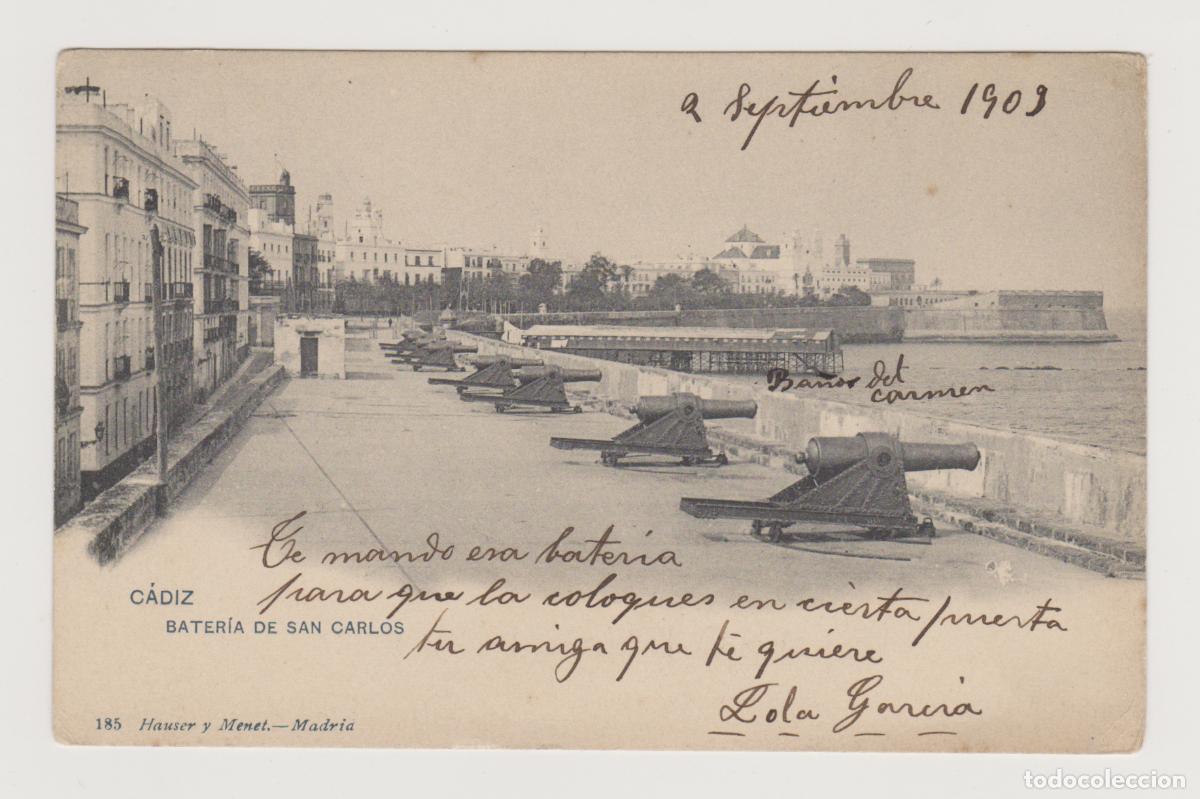 2 Septiembre 1903
Baños del
carmen
Te mando esa batería
para que la coloques en cierta puerta
tu amiga que te quiere
Lola García
CÁDIZ
BATERÍA DE SAN CARLOS
185 Hauser y Menet.—Madrid
todocoleccion